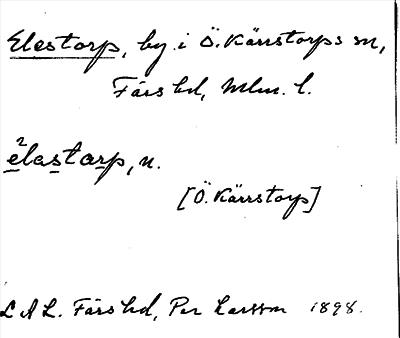 Elestorp, by i Ö. Kärrstorps sn,
Färs hd, Mlm. l.
2
elastarp, n.
[Ö. Kärrstorp]
L A L. Färs hd, Per Larsson 1898.